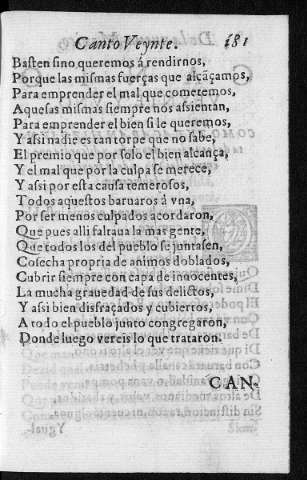 Canto Veynte. 181
Basten sino queremos á rendirnos,
Porque las mismas fuerças que alcãçamos,
Para emprender el mal que cometemos,
Aquesas mismas siempre nos assientan,
Para emprender el bien si le queremos,
Y assi nadie es tan torpe que no sabe,
El premio que por solo el bien alcança,
Y el mal que por la culpa se merece,
Y assi por esta causa temerosos,
Todos aquestos baruaros á vna,
Por ser menos culpados acordaron,
Que pues alli faltaua la mas gente,
Que todos los del pueblo se juntasen,
Cosecha propria de animos doblados,
Cubrir siempre con capa de inocentes,
La mucha grauedad de sus delictos,
Y asi bien disfraçados y cubiertos,
A todo el pueblo junto congregaron,
Donde luego vereis lo que trataron.
CAN-